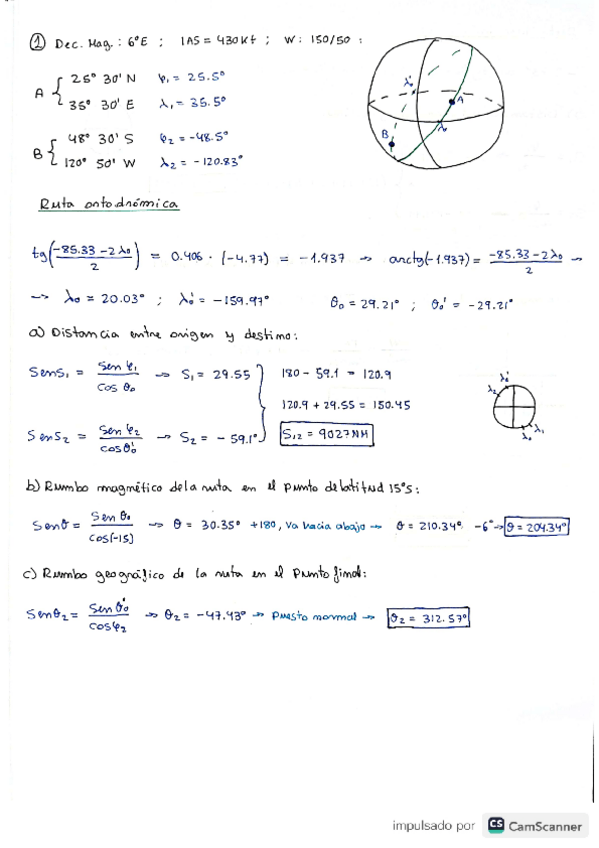 ① Dec. Mag.: 6°E ; IAS = 430Kt ; W: 150/50 :
A { 25° 30' N φ₁ = 25.5°
35° 30' E λ₁ = 35.5°
B { 48° 30' S φ₂ = -48.5°
120° 50' W λ₂ = -120.83°
λ₀'
A
λ₀
B
Ruta ortodrómica
tg(-85.33 - 2λ₀ / 2) = 0.406 · (-4.77) = -1.937 → arctg(-1.937) = -85.33 - 2λ₀ / 2 →
→ λ₀ = 20.03° ; λ₀' = -159.97° θ₀ = 29.21° ; θ₀' = -29.21°
a) Distancia entre origen y destino:
Sen S₁ = Sen φ₁ / cos θ₀ → S₁ = 29.55 } 180 - 59.1 = 120.9
120.9 + 29.55 = 150.45
Sen S₂ = Sen φ₂ / cos θ₀' → S₂ = -59.1° S₁₂ = 9027 NM
λ₀'
λ₂
λ₁
λ₀
b) Rumbo magnético de la ruta en el punto de latitud 15°S:
Sen θ = Sen θ₀ / cos(-15) → θ = 30.35° +180, va hacia abajo → θ = 210.34° -6° → θ = 204.34°
c) Rumbo geográfico de la ruta en el punto final:
Sen θ₂ = Sen θ₀' / cos φ₂ → θ₂ = -47.43° → puesto normal → θ₂ = 312.57°
impulsado por CS CamScanner